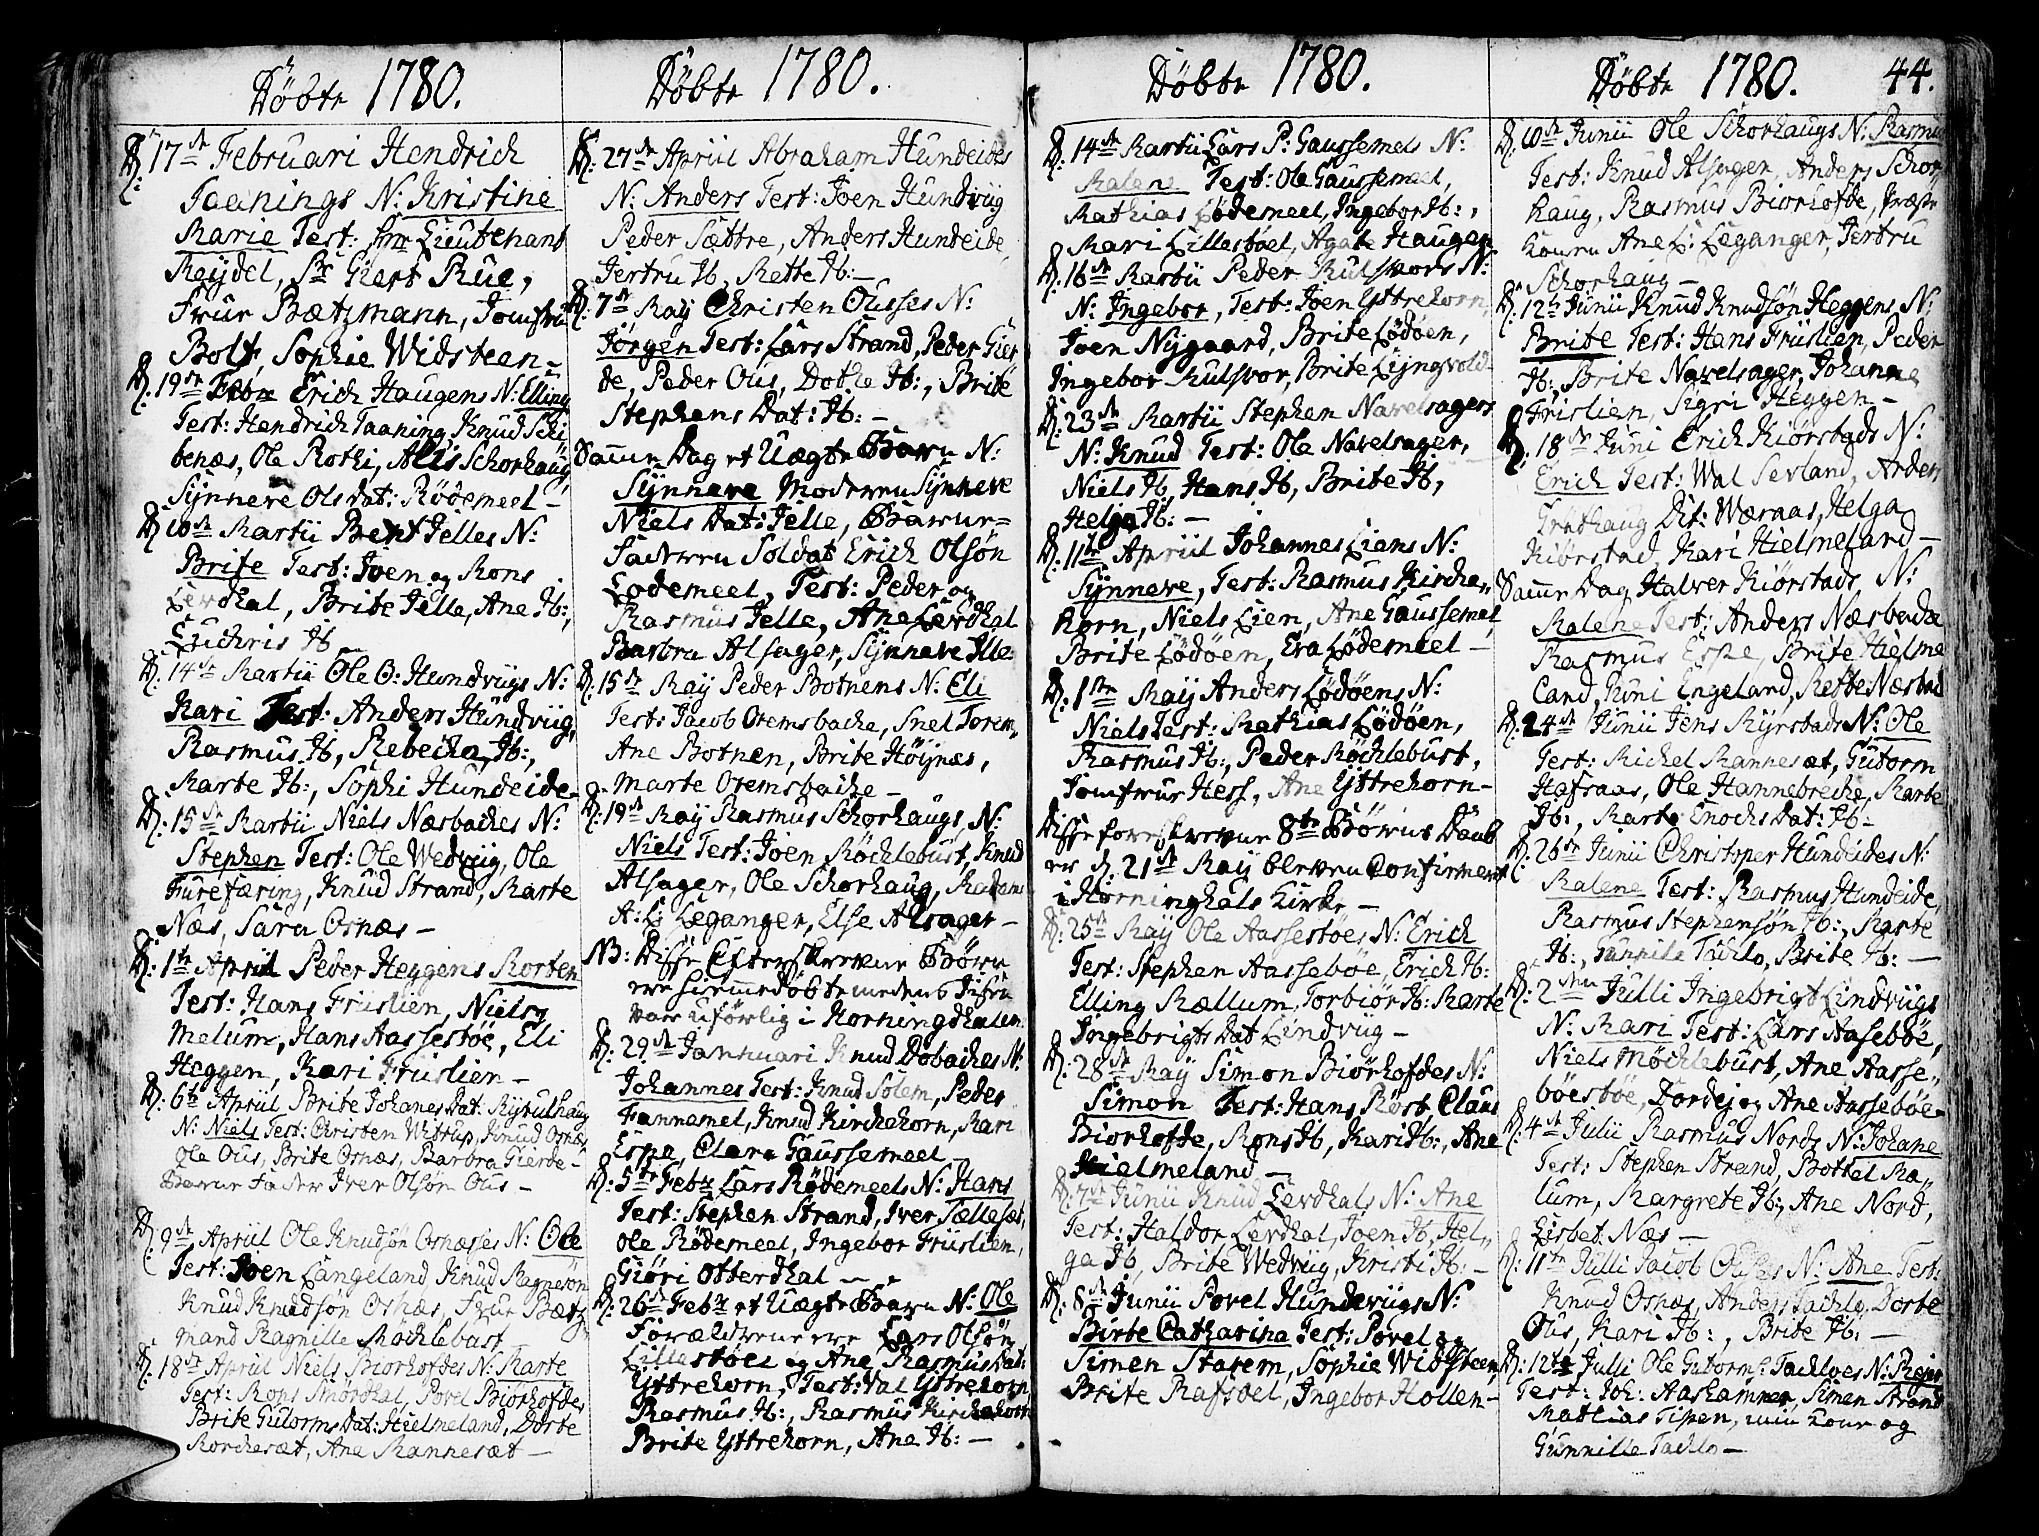 Döbte 1780.
D: 17de Februari Hendrich
Taanings N: Kristine
Marie Test: Hr Lieutenant
Meydel, Sr Giert Rue,
Frue Bætzmann, Jomfru
Bolt, Sophie Widsteen –
D: 19de Febr Erich Haugens N: Elling
Test: Hendrich Taaning, Knud Schi
benæs, Ole Rothi, Alis Schorhaug,
Synneve Olsdat: Rödemeel –
D: 10de Martii Bent Jelles N:
Brite Test: Joen og Mons
Lerdhal, Brite Jelle, Ane Ib:,
Luchris Ib
D: 14de Martii Ole O: Hundvigs N:
Kari Test: Anders Hundviig,
Rasmus Ib, Rebecha Ib:,
Marte Ib:, Sophi Hundeide –
D: 15de Martii Niels Næsbaches N:
Stephen Test: Ole Wedviig, Ole
Furefæring, Knud Strand, Marte
Næs, Sara Osnæs –
D: 1te April Peder Heggens Morten
Test: Hans Friislien, Niels
Melum, Hans Aassestöe, Eli
Heggen, Kari Friislien –
D: 6te April Brite Johanes Dat: Myrulhaug
N: Niels Test: Christen Witrup, Knud Osnæs
Ole Ous, Brite Osnæs, Barbra Gierde –
Barne Fader Iver Olsön Ous –
D: 9de April Ole Knudsön Osnæsses N: Ole
Test: Joen Langeland Knud Magnesön
Knud Knudsön Osnæs, Frue Bætz
mand Ragnille Möchlebust
D: 18de April Niels Biorhofdes N: Marte
Test: Mons Mordhal, Povel Biörhofde,
Brite Gutorms Dat: Hielmeland, Dorte
Morchesæt, Ane Mannesæt –
Döbte 1780.
D: 27de April Abraham Hundeides
N: Anders Test: Joen Hundviig
Peder Sættre, Anders Hundeide,
Jertru Ib, Mette Ib: –
D: 7de May Christen Ousses N:
Jörgen Test: Lars Strand, Peder Gier
de, Peder Ous, Dothe Ib:, Brite
Stephens Dat: Ib: –
Samme Dag et Uægte Barn N:
Synneve Moderen Synneve
Niels Dat: Jelle, Barne=
Faderen Soldat Erich Olsön
Lodemeel, Test: Peder og
Rasmus Jelle, Ane Lerdhal
Barbra Alsager, Synneve Jelle
D: 15de May Peder Botnens N: Eli
Test: Jacob Otemsbache, Snel Torem,
Ane Botnen, Brite Höynæs,
Marte Otemsbache –
D: 19de May Rasmus Schorhaugs N:
Niels Test: Joen Möchlebust, Knud
Alsager, Ole Schorhaug, Madame
A: L: Leganger, Else Alsager –
NB: Disse Efterskrevne Börn
ere hiemmedöbte medens Jisen
var uförlig i Horningdhalen
D: 29de Januari Knud Dobaches N:
Johannes Test: Knud Solem, Peder
Fannemel, Knud Kirchehorn, Kari
Espe, Clara Gaussemeel –
D: 5te Febr Lars Rödemeels N: Hans
Test: Stephen Strand, Iver Tællesæt,
Ole Rödemeel, Ingebor Friislien,
Giöri Otterdhal –
D: 26de Febr et Uægte Barn N: Ole
Forældrene ere Lars Olsön
Lillestöel og Ane Rasmus Dat:
Yttrehorn, Test: Val Yttrehorn
Rasmus Ib:, Rasmus Kirchehorn
Brite Yttrehorn, Ane Ib: –
Döbte 1780.
D: 14de Martii Lars P: Gaussemels N:
Malene Test: Ole Gaussemeel,
Mathias Lödemeel, Ingebor Ib:,
Mari Lillestöel, Agate Haugen
D: 16de Martii Peder Kulsvors N:
N: Ingebor, Test: Joen Yttrehorn,
Joen Nygaard, Brite Lödöen,
Ingebor Kulsvor, Brite Lyngvold –
D: 23de Martii Stephen Navelsagers
N: Knud Test: Ole Navelsager,
Niels Ib, Hans Ib, Brite Ib,
Helga Ib: –
D: 11te April Johannes Liens N:
Synneve, Test: Rasmus Kirche
Horn, Niels Lien, Ane Gaussemel,
Brite Lödöen, Eva Lödemeel –
D: 1ste May Anders Lödöens N:
Niels Test: Mathias Lödöen,
Rasmus Ib:, Peder Möchlebust,
Jomfrue Hess, Ane Yttrehorn –
Disse foreskrevne 8te Börns Daab
er d: 21de May bleven Confirmert
i Horningdhals Kirke –
D: 25de May Ole Aassestöes N: Erich
Test: Stephen Aasseböe, Erich Ib:
Elling Mællum, Torbiör Ib: Marte
Ingebrigts Dat Lindviig –
D: 28de May Simon Biörhofdes N:
Simon Test: Hans Röst, Claus
Biorhofde, Mons Ib, Kari Ib:, Ane
Hielmeland –
D: 7de Junii Knud Lerdhals N: Ane
Test: Haldor Lerdhal, Joen Ib, Hel
ga Ib, Brite Wedviig, Kristi Ib: –
D: 8de Junii Povel Hundeviigs N:
Birte Catharina Test: Povel og
Simen Starem, Sophie Widsteen,
Brite Rafsdel, Ingebor Hollen –
Döbte 1780. 44.
D: 10de Junii Ole Schorhaugs N: Rasmus
Test: Knud Alsager, Anders Schor
haug, Rasmus Biorhofde, Præste
konen Ane L: Leganger, Jertru
Schorhaug –
D: 12te Junii Knud Knudsön Heggens N:
Brite Test: Hans Friislien, Peder
Ib:, Brite Navelsager, Johanne
Frislien, Sigri Heggen –
D: 18de Juni Erich Kiörstads N:
Erich Test: Wal Sevland, Anders
Trathaug Dit: Wæraas, Helga
Kiörstad Kari Hielmeland –
Samme Dag Halver Kiörstads N:
Malene Test: Anders Næsbache
Rasmus Espe, Brite Hielme
Land, Guni Engeland, Mette Næstad
D: 24de Junii Jens Myrstads N: Ole
Test: Michel Mannesæt, Gutorm
Hafraas, Ole Hannebreche, Marte
Ib:, Marte Enochs Dat: Ib: –
D: 26de Junii Christoper Hundeides N:
Malene Test: Rasmus Hundeide,
Rasmus Stephensön Ib:, Marte
Ib:, Gunnile Tachlo, Brite Ib: –
D: 2den Julli Ingebrigt Lindviigs
N: Mari Test: Lars Aaseböe,
Niels Möchlebust, Ane Aasse
böestöe, Dordej og Ane Aasseböe
D: 4de Julii Rasmus Nords N: Johane
Test: Stephen Strand, Bottel Mæ
lum, Margrete Ib:, Ane Nord,
Lisbet Næs –
D: 11te Julli Jacob Ouses N: Ane Test:
Knud Osnæs, Anders Tachlo, Dorte
Ous, Kari Ib:, Brite Ib: –
D: 12te Julli Ole Gutorms: Tachloes N:
Test: Joh: Aashammer, Simen Strand
Mathias Tipen, min Kone og
Gunnille Tachlo –